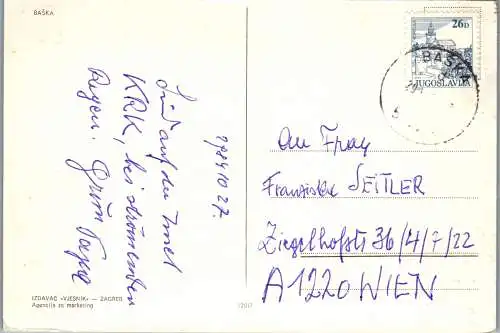 BAŠKA
1984 10 27.
Sind auf der Insel
KRK, bei strömenden
Regen. Grüße Papa
IZDAVAČ »VJESNIK« — ZAGREB
Agencija za marketing
26D
JUGOSLAVIJA
BAŠKA
An Frau
Franziska SEITLER
Ziegelhofstr 36/4/7/22
A1220 WIEN